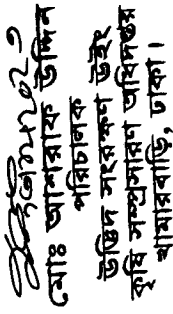 মোঃ তাজাম্মেল উদ্দিন
পরিচালক
উদ্ভিদ সংরক্ষণ উইং
কৃষি সম্প্রসারণ অধিদপ্তর
খামারবাড়ি, ঢাকা।